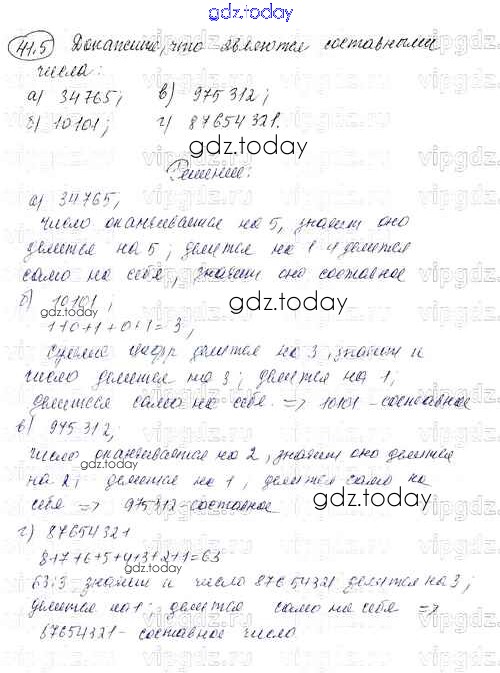 gdz.today
41.5 Докажите, что являются составными
числа:
а) 34765; в) 975312;
б) 10101; г) 87654321.
gdz.today
Решение:
а) 34765;
число оканчивается на 5, значит оно
делится на 5; делится на 1 и делится
само на себя, значит оно составное
б) 10101;
gdz.today
gdz.today
1+0+1+0+1=3,
сумма цифр делится на 3, значит и
число делится на 3; делится на 1;
делится само на себя => 10101 - составное
в) 975312;
число оканчивается на 2, значит оно делится
gdz.today
на 2; делится на 1, делится само на
себя => 975312-составное
gdz.today
г) 87654321
8+7+6+5+4+3+2+1=63
63:3, значит и число 87654321 делится на 3;
делится на 1; делится само на себя =>
87654321- составное число